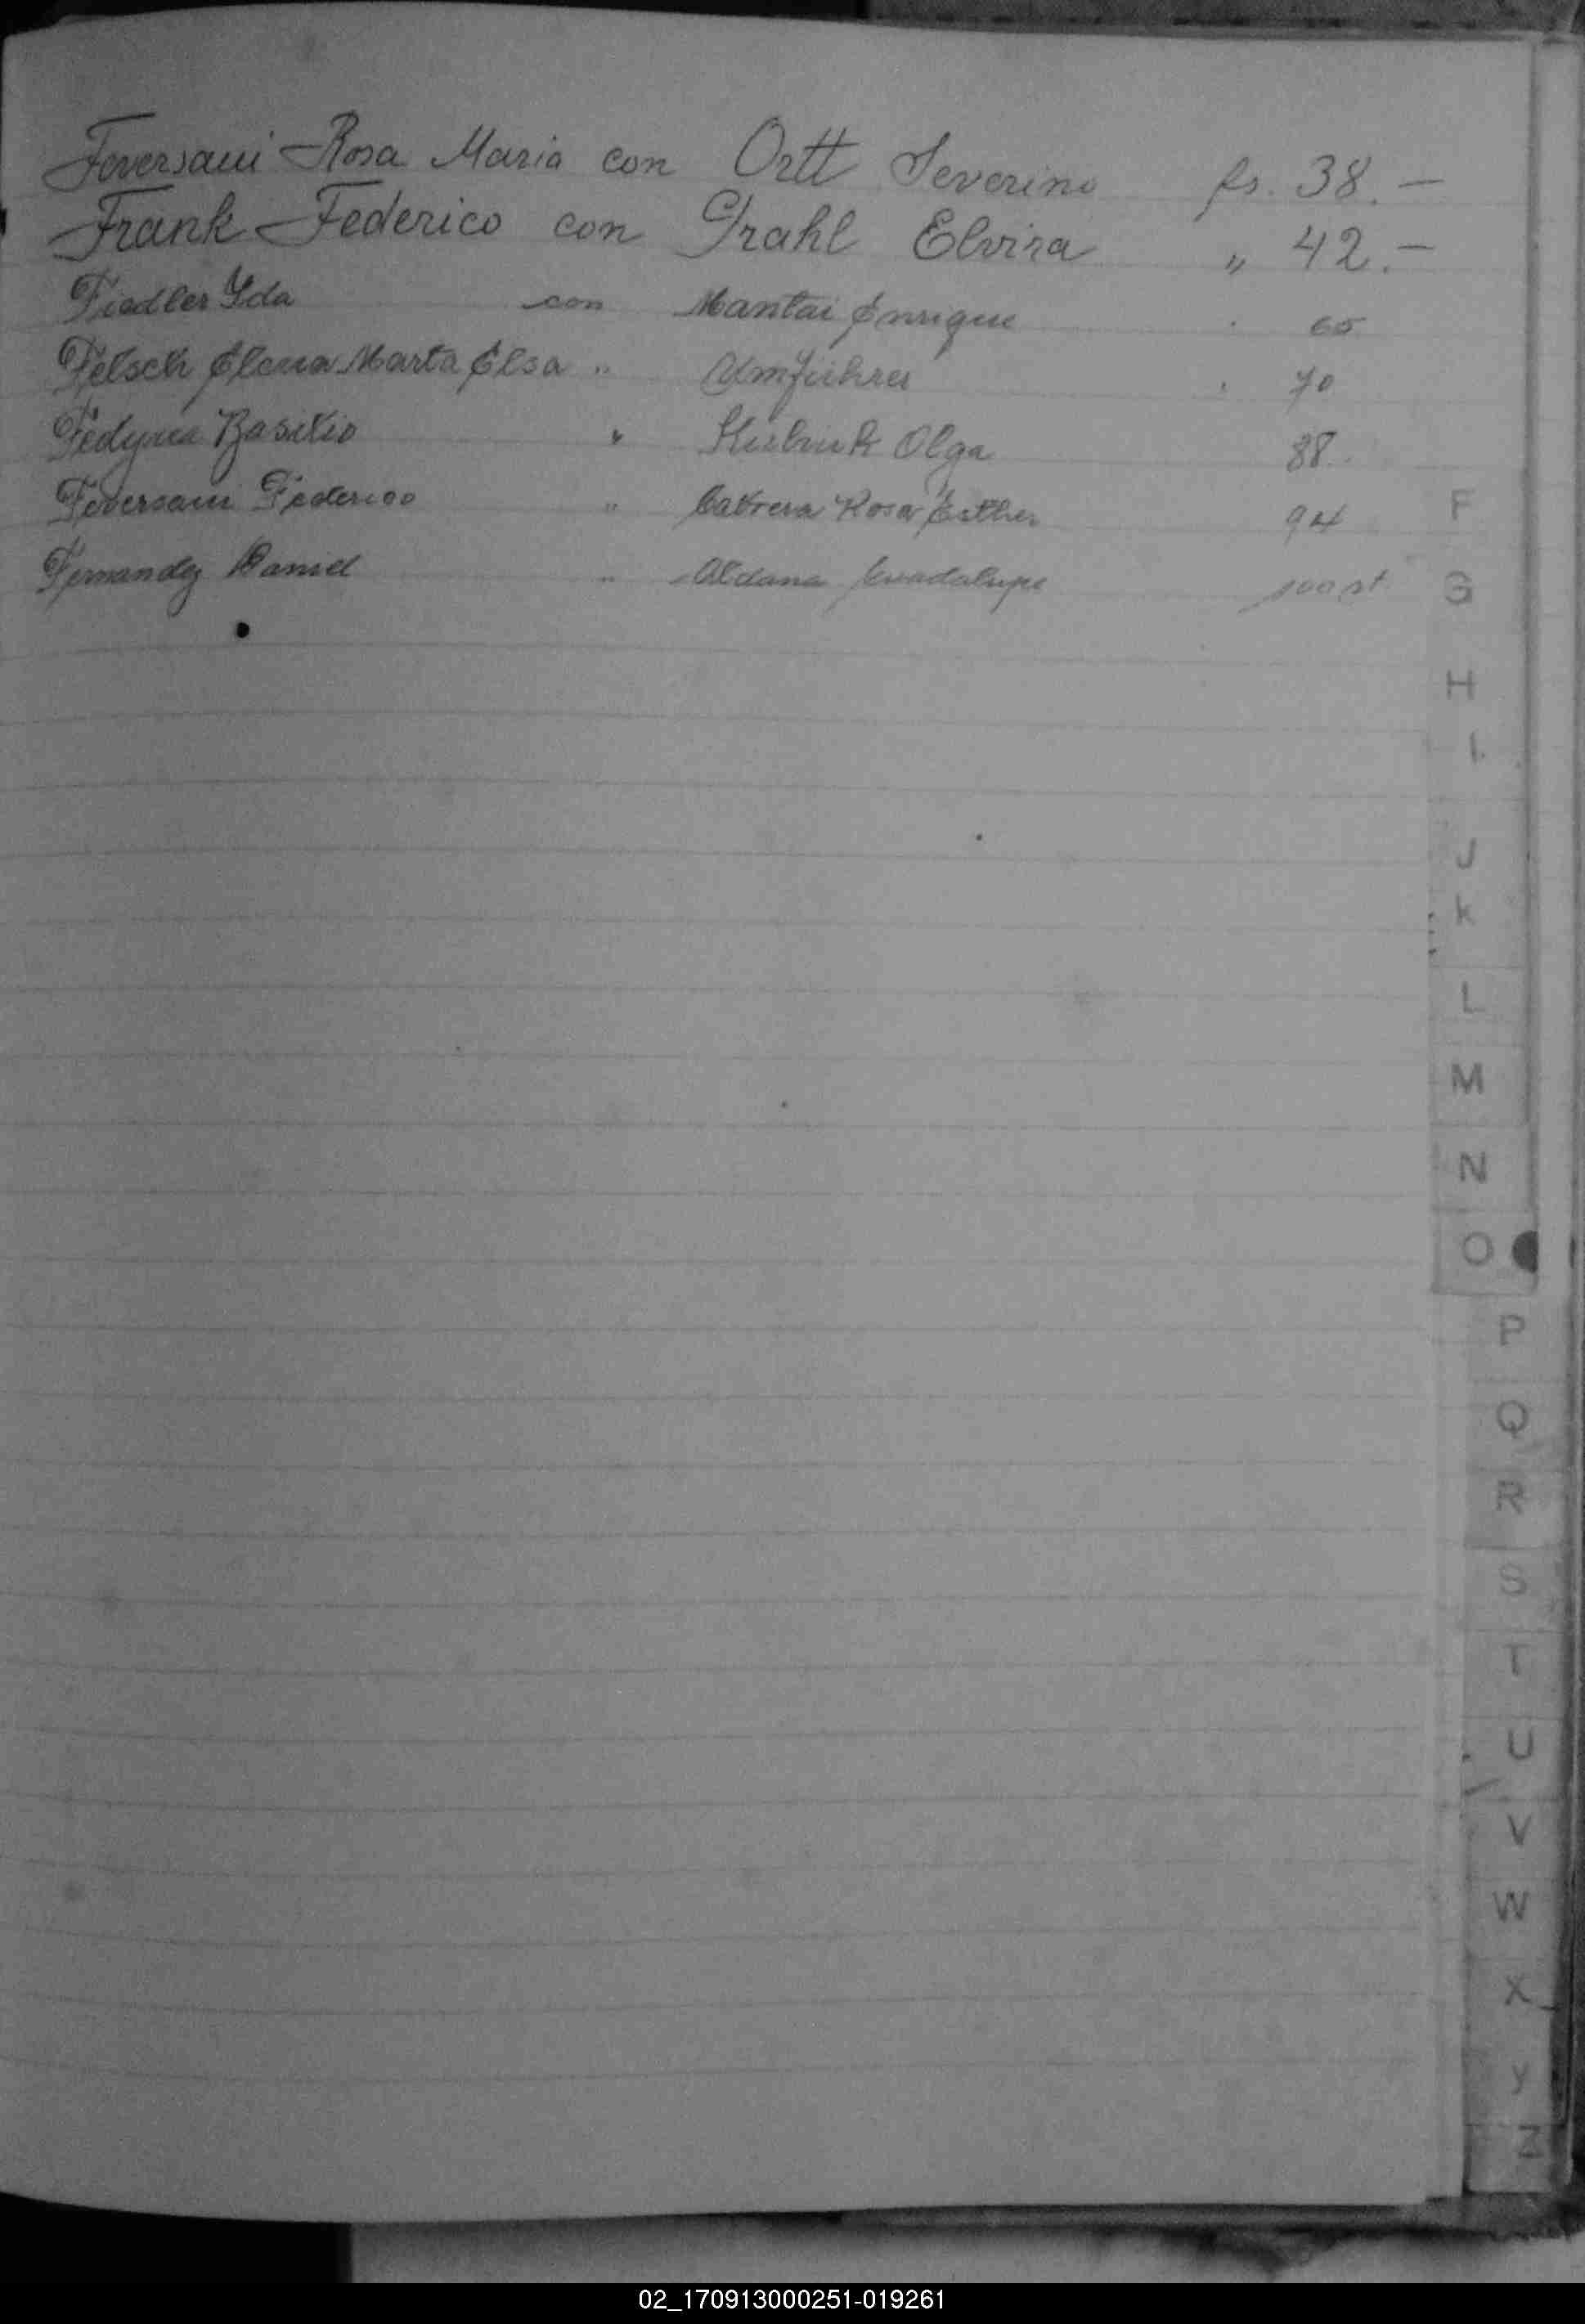 Foversani Rosa Maria con Ortt Severino fs. 38.—
Frank Federico con Grahl Elvira " 42.—
Fiedler Yda con Mantai Enrique 65
Felsch Elena Marta Elsa " Umführer 70
Basilio " Olga 88
Foversani Federico " Cabrera Rosa Esther 94
Fernandez Daniel " Aldana Guadalupe 100
F
G
H
I
J
K
L
M
N
O
P
Q
R
S
T
U
V
W
X
Y
Z
02_170913000251-019261